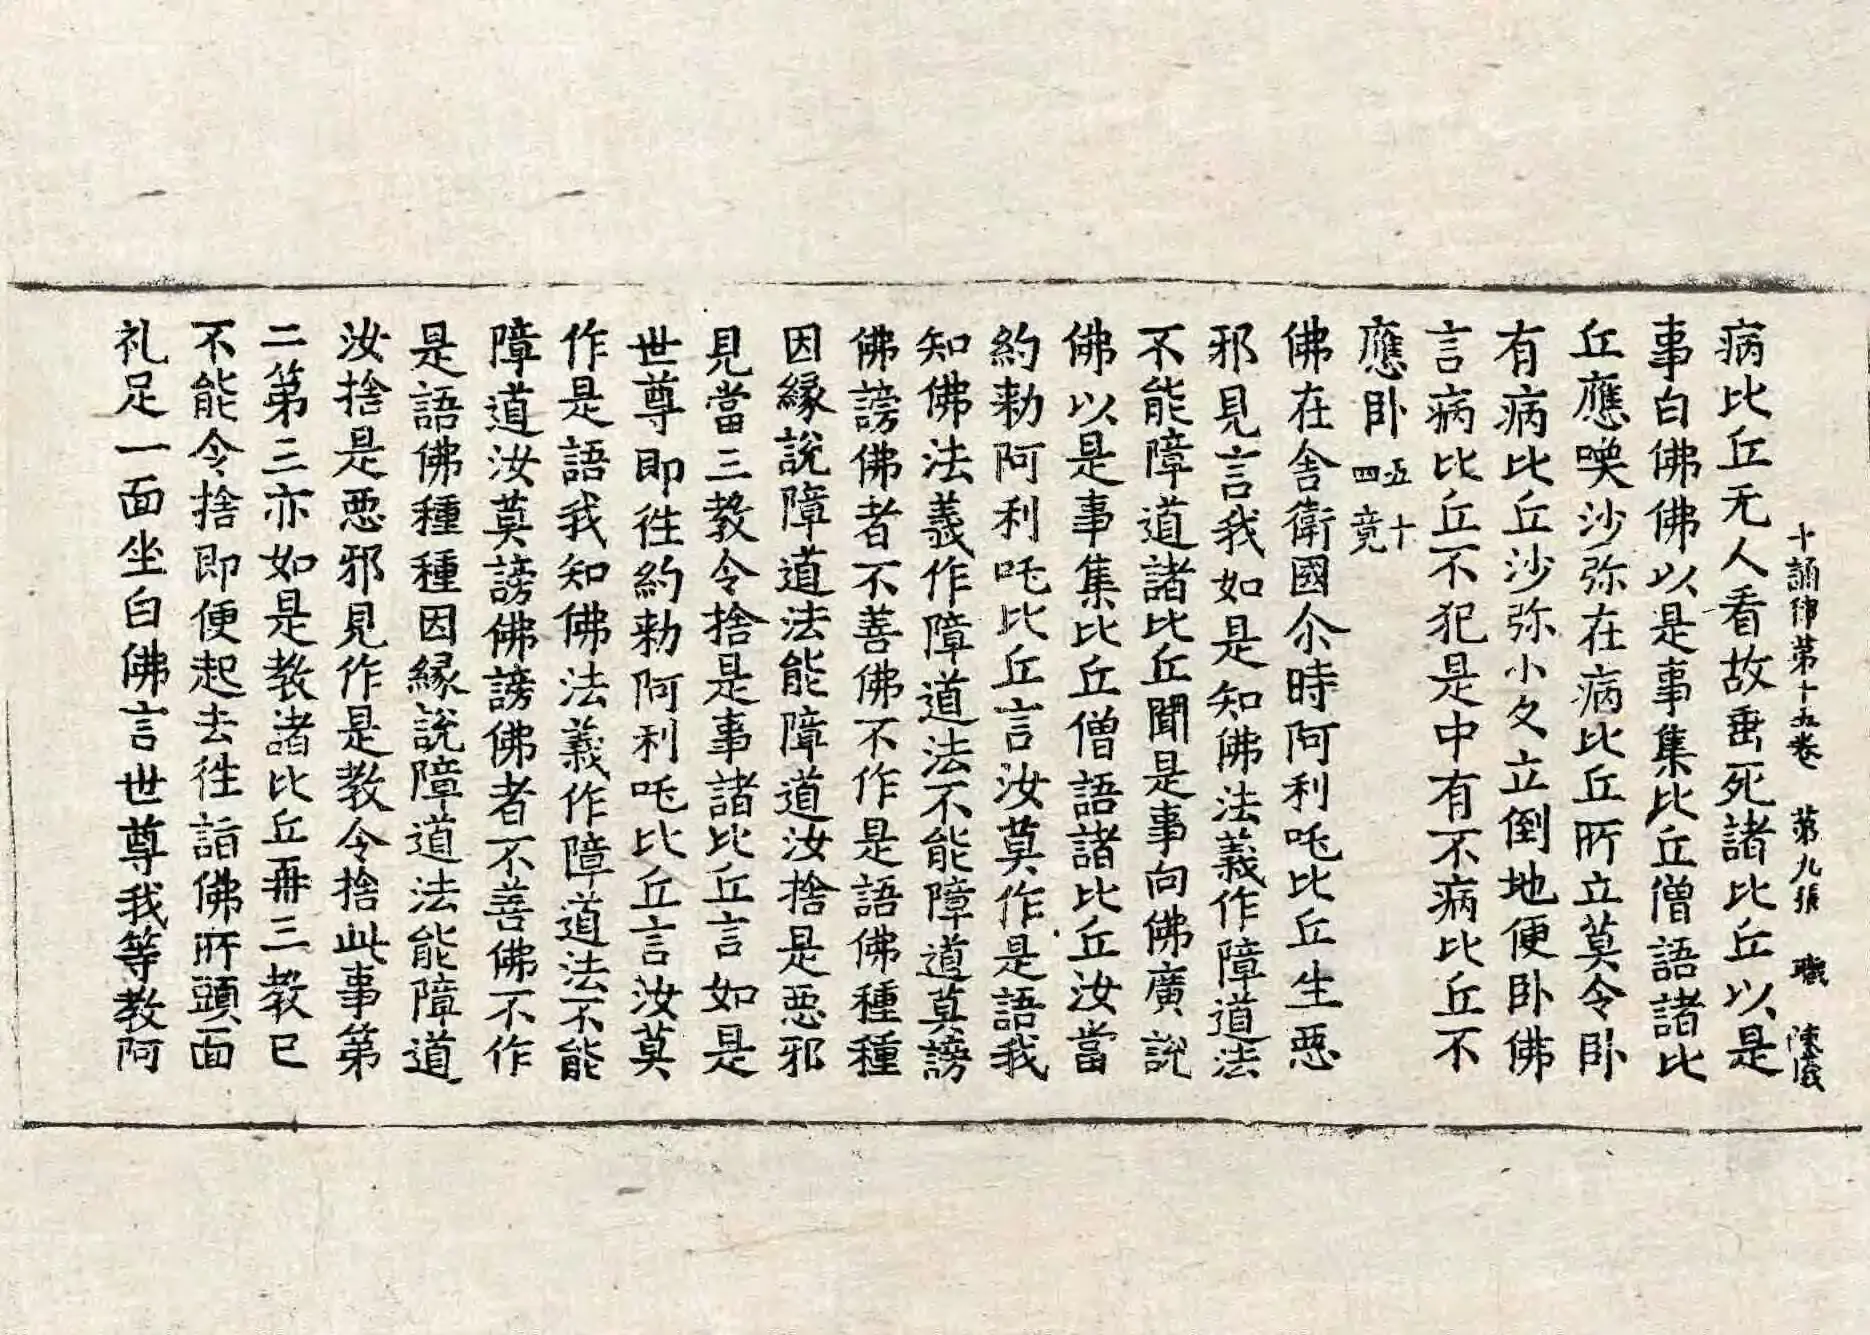 十誦律第十五卷　第九張　職　陳儀
病比丘无人看故垂死諸比丘以是
事白佛佛以是事集比丘僧語諸比
丘應喚沙弥在病比丘所立莫令卧
有病比丘沙弥小久立倒地便卧佛
言病比丘不犯是中有不病比丘不
應卧五十四竟
佛在舍衛國尒時阿利吒比丘生惡
邪見言我如是知佛法義作障道法
不能障道諸比丘聞是事向佛廣說
佛以是事集比丘僧語諸比丘汝當
約勑阿利吒比丘言汝莫作是語我
知佛法義作障道法不能障道莫謗
佛謗佛者不善佛不作是語佛種種
因緣說障道法能障道汝捨是惡邪
見當三教令捨是事諸比丘言如是
世尊即徃約勑阿利吒比丘言汝莫
作是語我知佛法義作障道法不能
障道汝莫謗佛謗佛者不善佛不作
是語佛種種因緣說障道法能障道
汝捨是惡邪見作是教令捨此事第
二第三亦如是教諸比丘再三教已
不能令捨即便起去徃詣佛所頭面
礼足一面坐白佛言世尊我等教阿